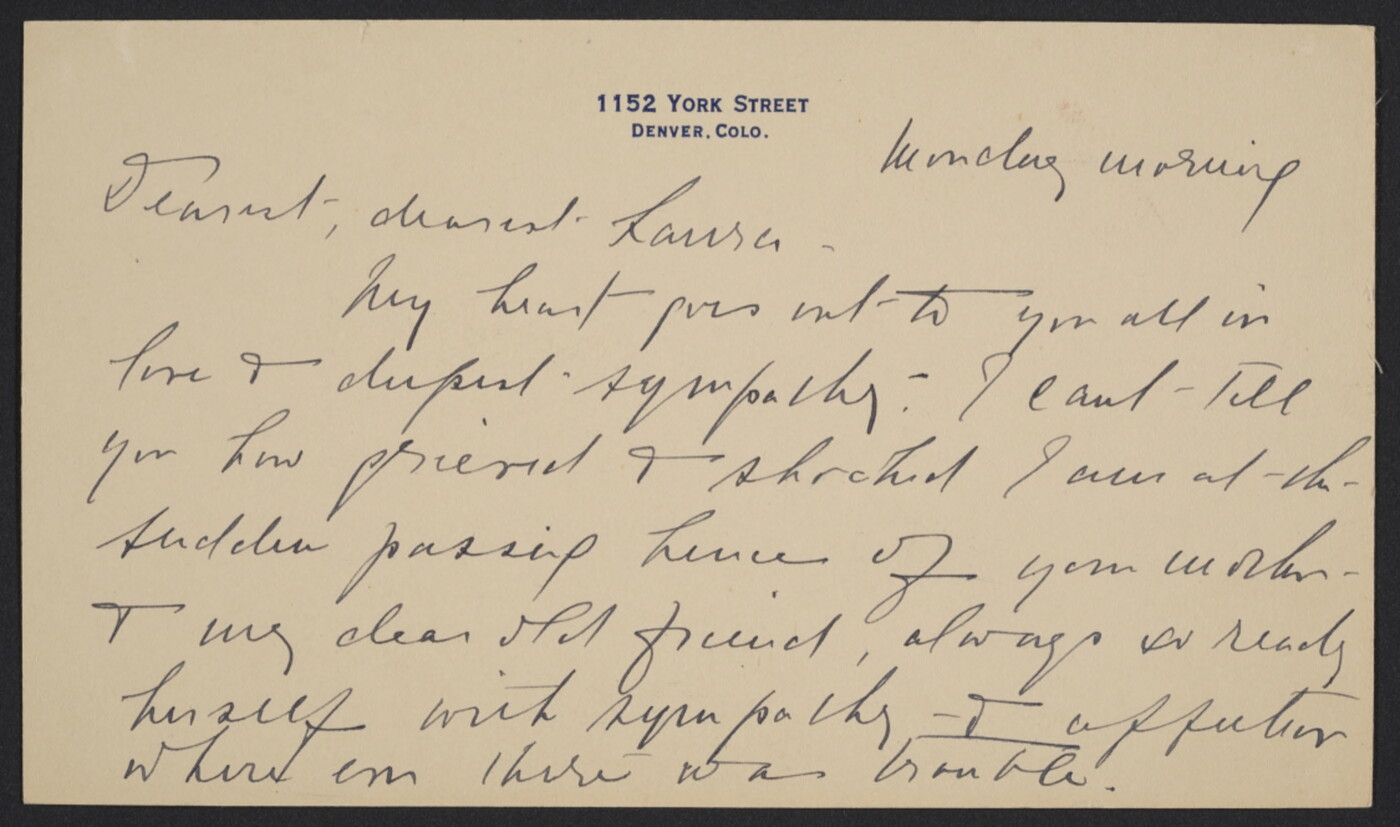 1152 YORK STREET
DENVER, COLO.
Monday morning
Dearest, dearest Laura -
My heart goes out to you all in
love & deepest sympathy. - I can't tell
you how grieved & shocked I am at the
sudden passing hence of your mother
& my dear old friend, always so ready
herself with sympathy & affection
wherever there was trouble.